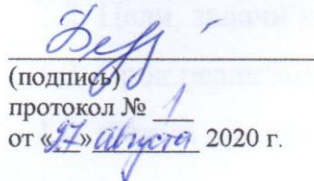 (подпись)
протокол № 1
от «27» августа 2020 г.